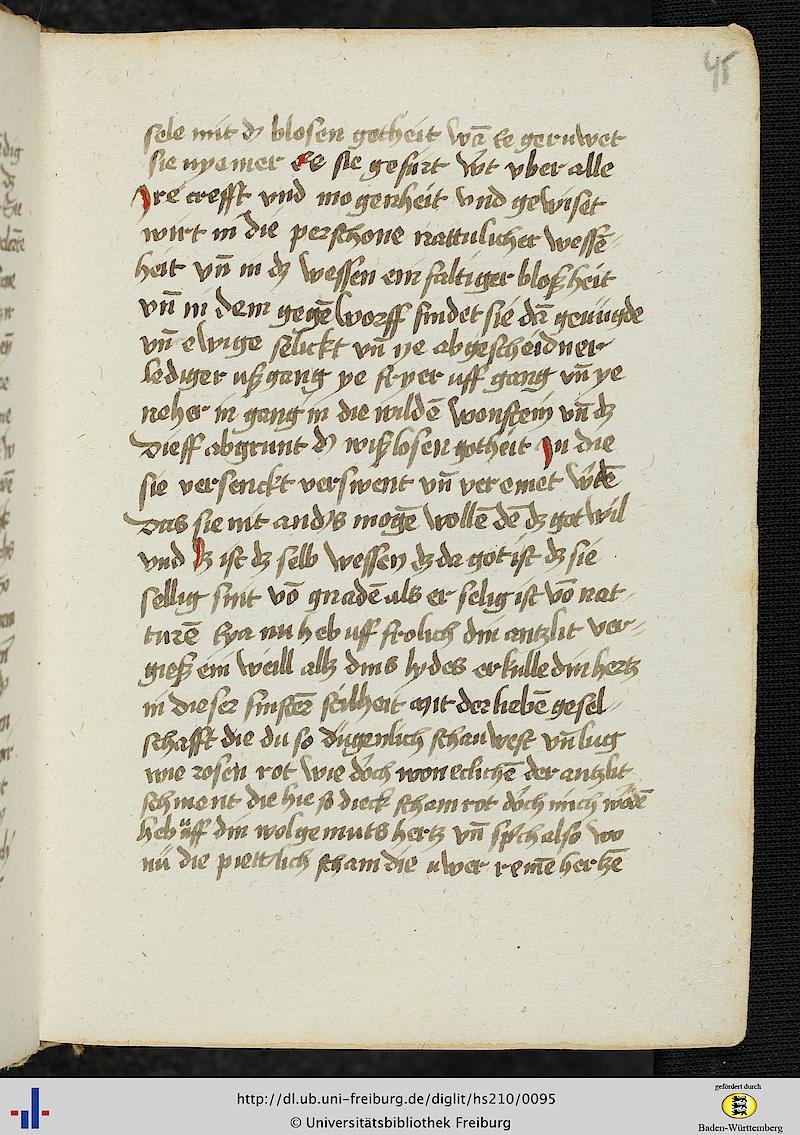 45
sele mit dʼ blosen gotheit wā Ee geruwet
sie nyemer Ee sie gefürt wt vber alle
Jre crefft vnd mogenheit vnd gewiset
wirt in die perschone nattulicher wessē-
heit vn̄ in dz wessen ein faltiger bloßheit
vn̄ in dem gegē worff findet sie dā genügde
vn̄ ewige selickt vn̄ ye abgescheidner
lediger ußgang ye fryer uff gang vn̄ ye
neher in gang in die wildē wonsteiñ vn̄ dz
Dieff abgrunt dʼ wißlosen gotheit Jn die
sie versenckt verswent vn̄ vereinet wdē
Das sie nit andʼs mogē wollē dē dz got wil
vnd Dz ist dz selb wessen dz da got ist dz sie
sellig sint vō gnadē als er selig ist vō nat-
turē Eya nu heb uff frolich din antzlit ver-
gieß ein weill allz dins lydes erkulle din hertz
in dieser finsterē stilheit mit der liebē gesel-
schafft die du so dugenlich schauwest vn̄ lug
wie rosen rot wie doch woneclichē der antzlit
schinent die hie so dieck scham rot doch mich wdē
heb uff din wolgemuts hertz vn̄ spʼch also wo
nü die piettlich scham die uwer reinē hertzē
http://dl.ub.uni-freiburg.de/diglit/hs210/0095
© Universitätsbibliothek Freiburg
gefördert durch
Baden-Württemberg